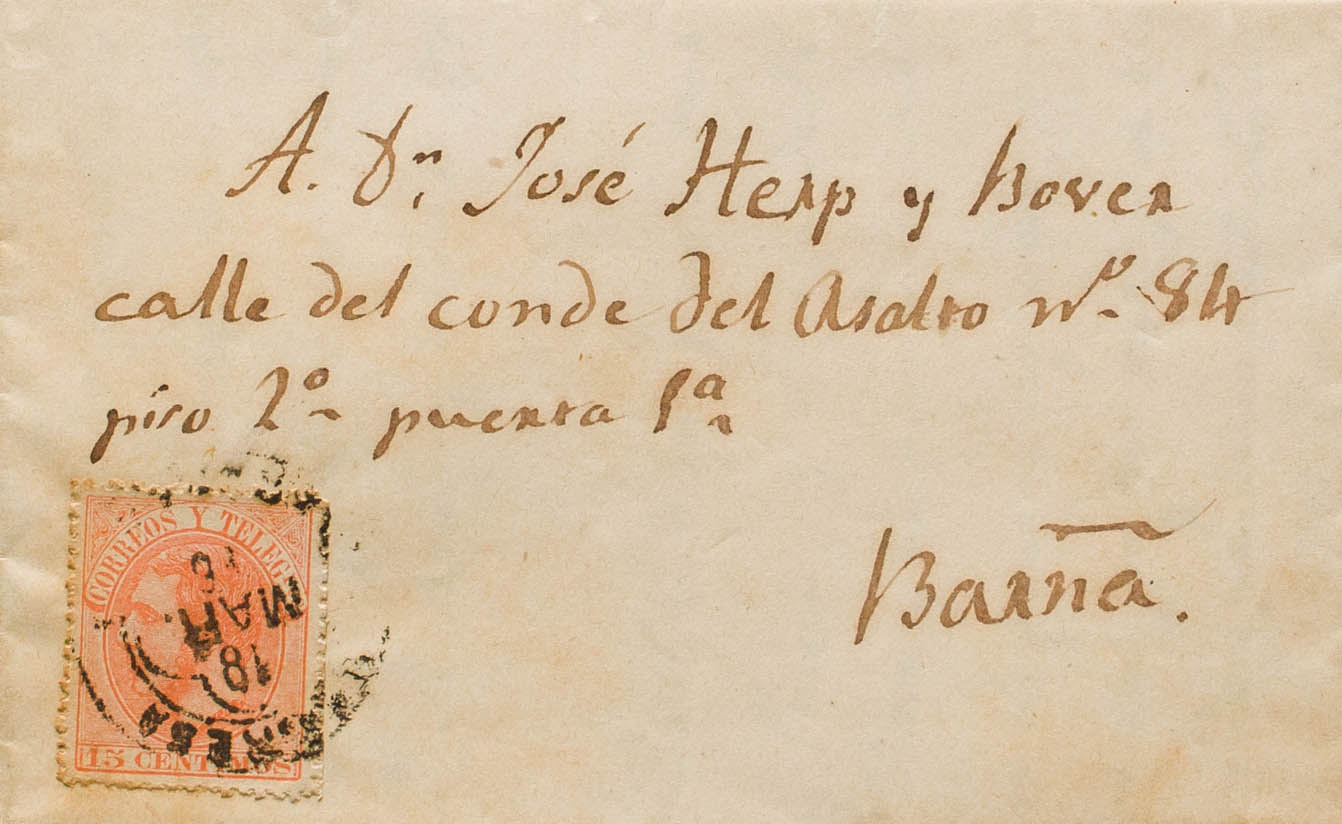 A. Dn. José Herp y Bover
calle del conde del Asalto nº. 84
piso 2º puerta 1ª
Barna.
CORREOS Y TELEGF
MAR
18
15 CENTIMOS